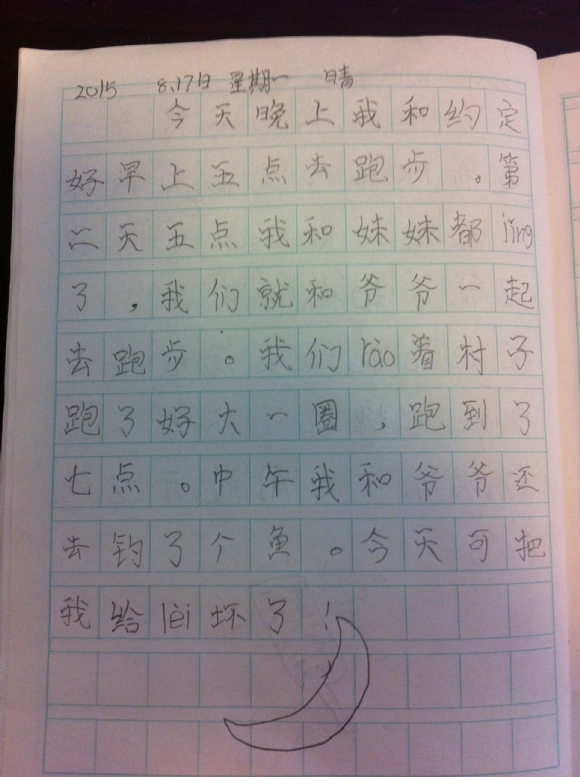 2015 8.17日 星期一 晴
今天晚上我和约定
好早上五点去跑步。第
二天五点我和妹妹都jing
了，我们就和爷爷一起
去跑步。我们rào着村子
跑了好大一圈，跑到了
七点。中午我和爷爷还
去钓了个鱼。今天可把
我给lèi坏了！